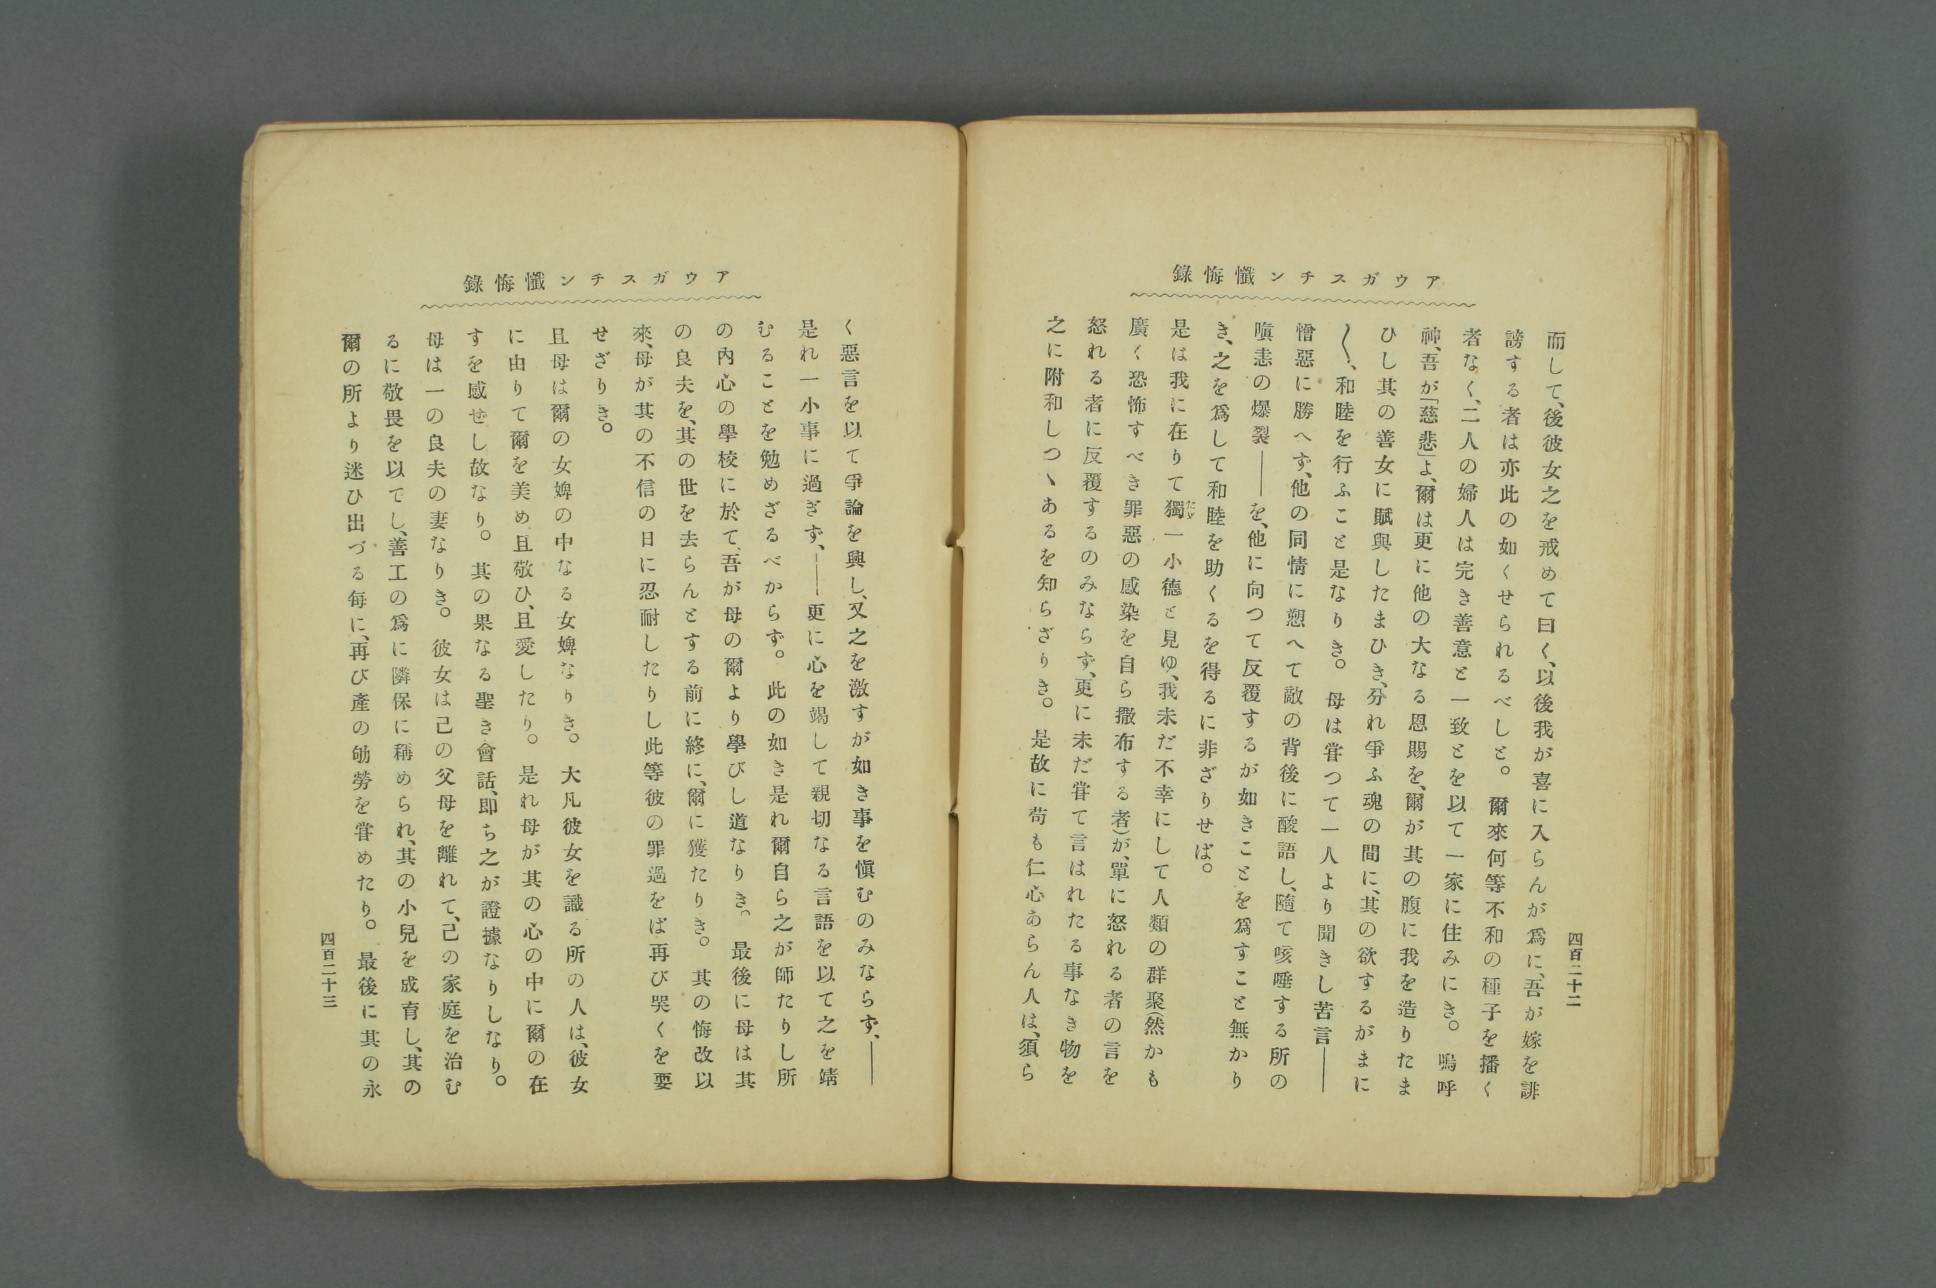 アウガスチン懺悔錄
四百二十二
而して、後彼女之を戒めて曰く、以後我が喜に入らんが爲に、吾が嫁を誹
謗する者は亦此の如くせられるべしと。爾來何等不和の種子を播く
者なく、二人の婦人は完き善意と一致とを以て一家に住みにき。嗚呼
神、吾が「慈悲」よ、爾は更に他の大なる恩賜を、爾が其の腹に我を造りたま
ひし其の善女に賦與したまひき、分れ爭ふ魂の間に、其の欲するがまに
〱、和睦を行ふこと是なりき。母は甞つて一人より聞きし苦言――
憎惡に勝へず、他の同情に愬へて敵の背後に酸語し、隨て咳唾する所の
嗔恚の爆裂――を、他に向つて反覆するが如きことを爲すこと無かり
き、之を爲して和睦を助くるを得るに非ざりせば。
是は我に在りて獨一小德と見ゆ、我未だ不幸にして人類の群聚(然かも
廣く恐怖すべき罪惡の感染を自ら撒布する者)が、單に怒れる者の言を
怒れる者に反覆するのみならず、更に未だ甞て言はれたる事なき物を
之に附和しつヽあるを知らざりき。是故に苟も仁心あらん人は、須ら
アウガスチン懺悔錄
く惡言を以て爭論を興し、又之を激すが如き事を愼むのみならず、――
是れ一小事に過ぎず、――更に心を竭して親切なる言語を以て之を靖
むることを勉めざるべからず。此の如き是れ爾自ら之が師たりし所
の內心の學校に於て、吾が母の爾より學びし道なりき。最後に母は其
の良夫を、其の世を去らんとする前に終に、爾に獲たりき。其の悔改以
來、母が其の不信の日に忍耐したりし此等彼の罪過をば再び哭くを要
せざりき。
且母は爾の女婢の中なる女婢なりき。大凡彼女を識る所の人は、彼女
に由りて爾を美め、且敬ひ、且愛したり。是れ母が其の心の中に爾の在
すを感せし故なり。其の果なる聖き會話、卽ち之が證據なりしなり。
母は一の良夫の妻なりき。彼女は己の父母を離れて、己の家庭を治む
るに敬畏を以てし、善工の爲に隣保に稱められ、其の小兒を成育し、其の
爾の所より迷ひ出づる每に、再び產の劬勞を甞めたり。最後に其の永
四百二十三